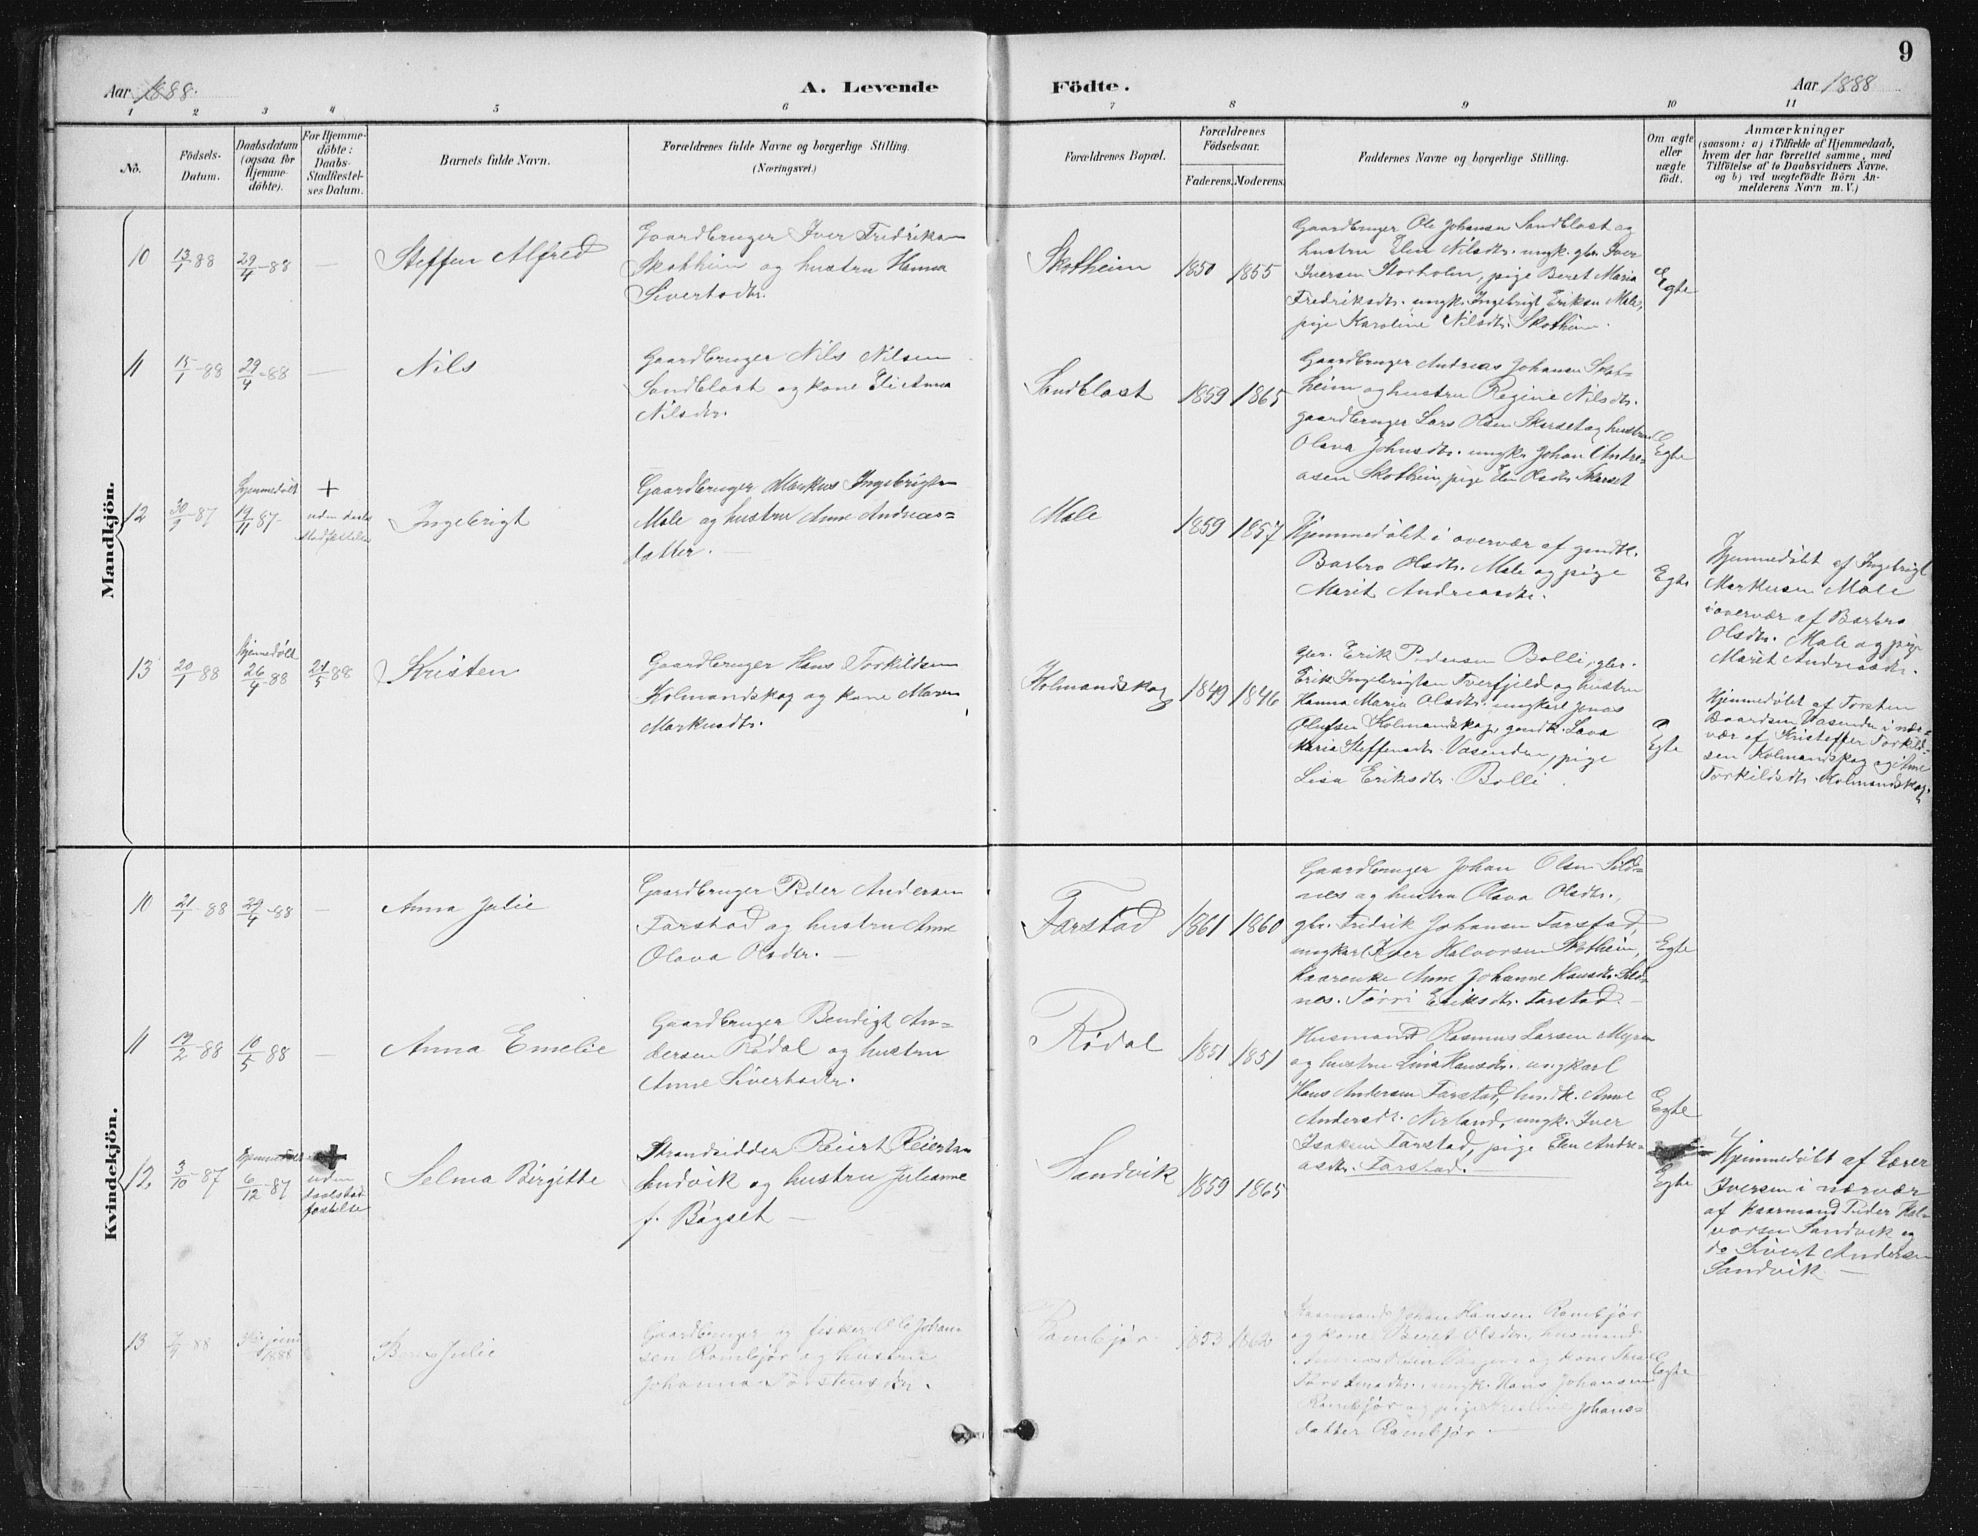 9
Aar 1888.
A. Levende
Födte.
Aar 1888
1 2 3 4 5 6 7 8 8 9 10 11
No.
Födsels-
Datum.
Daabsdatum
(ogsaa for
Hjemme-
döbte).
For Hjemme-
döbte:
Daabs-
Stadfæstel-
ses Datum.
Barnets fulde Navn.
Forældrenes fulde Navne og borgerlige Stilling.
(Næringsvei.)
Forældrenes Bopæl.
Forældrenes
Födselsaar.
Faderens. Moderens.
Faddernes Navne og borgerlige Stilling.
Om ægte
eller
uægte
födt.
Anmærkninger
(saasom: a) i Tilfælde af Hjemmedaab,
hvem der har forrettet samme, med
Tilföielse af to Daabsvidners Navne,
og b) ved uægtefödte Börn An-
melderens Navn m. V.)
Mandkjön.
10
13/1 88
29/4-88
—
Steffen Alfred
Gaardbruger Iver Fredriksen
Skotheim og hustru Hanna
Sivertsdtr.
Skotheim
1850 1855
Gaardbruger Ole Johansen Sandblast og
hustru Elen Nilsdtr. ungk. gbr. Iver
Iversen Storholm, pige Beret Maria
Fredriksdtr. ungk. Ingebrigt Eriksen Male,
pige Karoline Nilsdtr. Skotheim.
Egte
11
15/1-88
29/4-88
—
Nils
Gaardbruger Nils Nilsen
Sandblast og kone Eli Anna
Nilsdtr.
Sandblast
1859 1865
Gaardbruger Andreas Johansen Skot-
heim og hustru Regine Nilsdtr.
gaardbruger Lars Olsen Skarset og hustru
Olava Johnsdtr. ungk. Johan Andre-
asen Skotheim, pige Elen Olsdtr. Skarset
Egte
12
30/9-87
Hjemmedøbt
19/11 87
+
uden daabs
stadfæstelse
Ingebrigt
Gaardbruger Markus Ingebrigtsen
Male og hustru Anne Andreas=
datter. —
Male
1859 1857
Hjemmedøbt i overvær af gmdk.
Barbro Olsdtr. Male og pige
Marit Andreasdtr.
Egte
Hjemmedøbt af Ingebrigt
Markusen Male
i overvær af Barbro
Olsdtr. Male og pige
Marit Andreasdtr.
13
20/1 88
Hjemmedøbt
26/4 88
21/5 88
Kristen
Gaardbruger Hans Torkildsen
Holmandskog og kone Maren
Markusdtr.
Holmandskog
1849 1846
gbr. Erik Pedersen Bolli, gbr.
Erik Ingebrigtsen Tverfjeld og hustru
Hanna Maria Olsdtr. ungkarl Jonas
Olufsen Holmandskog, gmdk. Lava
Maria Steffensdtr. Vasenden, pige
Lisa Eriksdtr. Bolli.
Egte
Hjemmedøbt af Torsten
Baardsen Vasenden i nær-
vær af Kristoffer Torkild-
sen Holmandskog og Ane
Torkildsdtr. Holmandskog.
Kvindekjön.
10
21/1 88
29/4-88
—
Anna Julie
Gaardbruger Peder Andersen
Farstad og hustru Anne
Olava Olsdtr. —
Farstad
1861 1860
Gaardbruger Johan Olsen Sild-
nes og hustru Olava Olsdtr.,
gbr. Fredrik Johansen Farstad,
ungkarl Iver Halvorsen Skotheim,
kaarenke Anne Johanne Hansdtr. Sild-
nes. Törri Eriksdtr. Farstad —
Egte
11
19/2-88
10/5-88
—
Anna Emelie
Gaardbruger Bendigt An-
dersen Rødal og hustru
Anne Sivertsdtr.
Rødal
1851 1851
Husmand Rasmus Larsen Myren
og hustru Lina Hansdtr. ungkarl
Hans Andersen Farstad, hmdk. Anne
Andersdtr. Nerland, ungk. Iver
Isaksen Farstad, pige Elen Andre-
asdtr. Farstad.
Egte
12
3/10 87
Hjemmedøbt
6/12-87
+
uden
daabstad-
fæstelse
Selma Birgitte
Strandsidder Reiert Reiertsen
Sandvik og hustru Julianne
f. Bøgset —
Sandvik
1859 1865
Egte
Hjemmedøbt af Lærer
Iversen i nærvær
af kaarmand Peder Hal-
vorsen Sandvik og
do Sivert Andersen
Sandvik —
13
88
1888
Julie
Gaardbruger og fisker Ole Johan-
sen Rambjør og hustru
Johanna Torstensdtr.
Rambjør
1853 1862
Kaarmand Johan Hansen Rambjør
og kone Beret Olsdtr. husmand
og kone
ungk. Hans Johansen
Rambjør og pige Johans-
datter Rambjør —
Egte